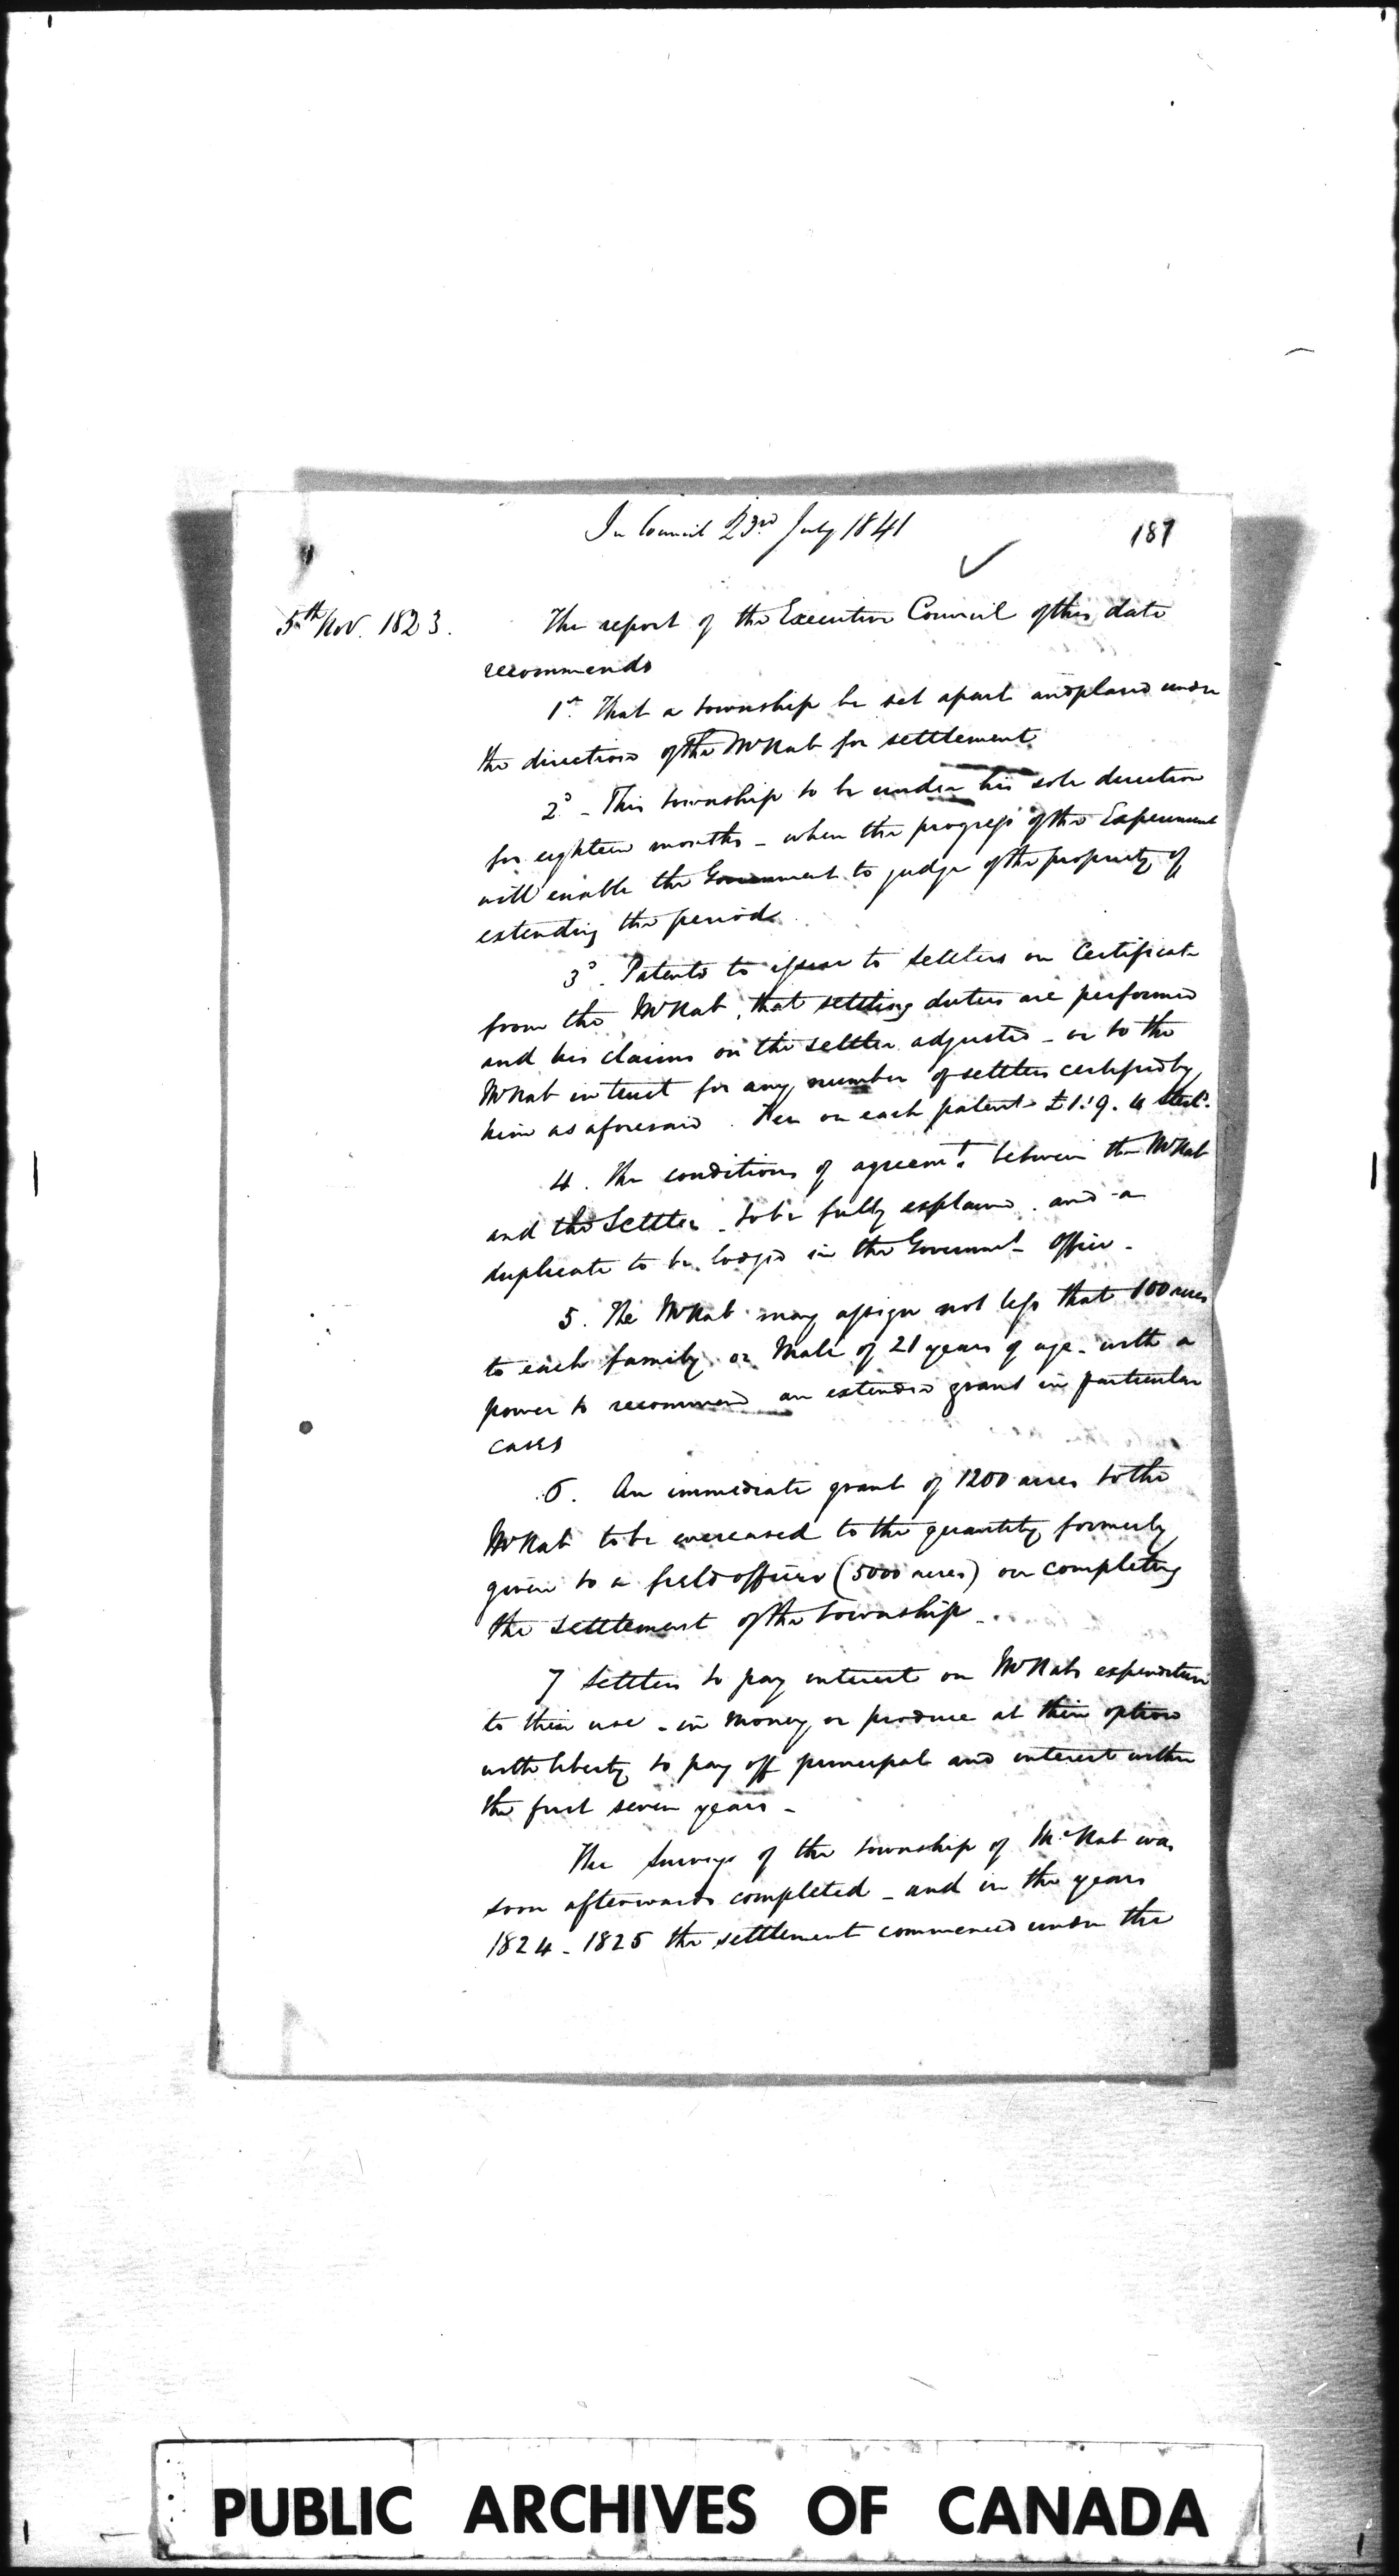 In Council 23rd July 1841
187
5th Nov. 1823.
The report of the Executive Council of this date
recommends
1st. That a township be set apart and placed under
the direction of the McNab for settlement
2d - This township to be under his sole direction
for eighteen months - when the progress of the Experiment
will enable the Government to judge of the propriety of
extending the period
3d. Patents to issue to settlers on Certificate
from the McNab, that settling duties are performed
and his claims on the settler adjusted - or to the
McNab in trust for any number of settlers certified by
him as aforesaid. Fee on each patent £1.19.4 Sterl.
4. The conditions of agreemt. between the McNab
and the Settler - to be fully explained. and a
duplicate to be lodged in the Government Office -
5. The McNab may assign not less that 100 acres
to each family or Male of 21 years of age - with a
power to recommend an extended grant in particular
cases
6. An immediate grant of 1200 acres to the
McNab to be encreased to the quantity formerly
given to a field officer (5000 acres) on completing
the settlement of the township -
7 Settlers to pay interest on McNabs expenditure
to their use - in money or produce at their option
with liberty to pay off principal and interest within
the first seven years -
The Surveys of the township of McNab was
soon afterwards completed - and in the years
1824 - 1825 the settlement commenced under the
PUBLIC ARCHIVES OF CANADA